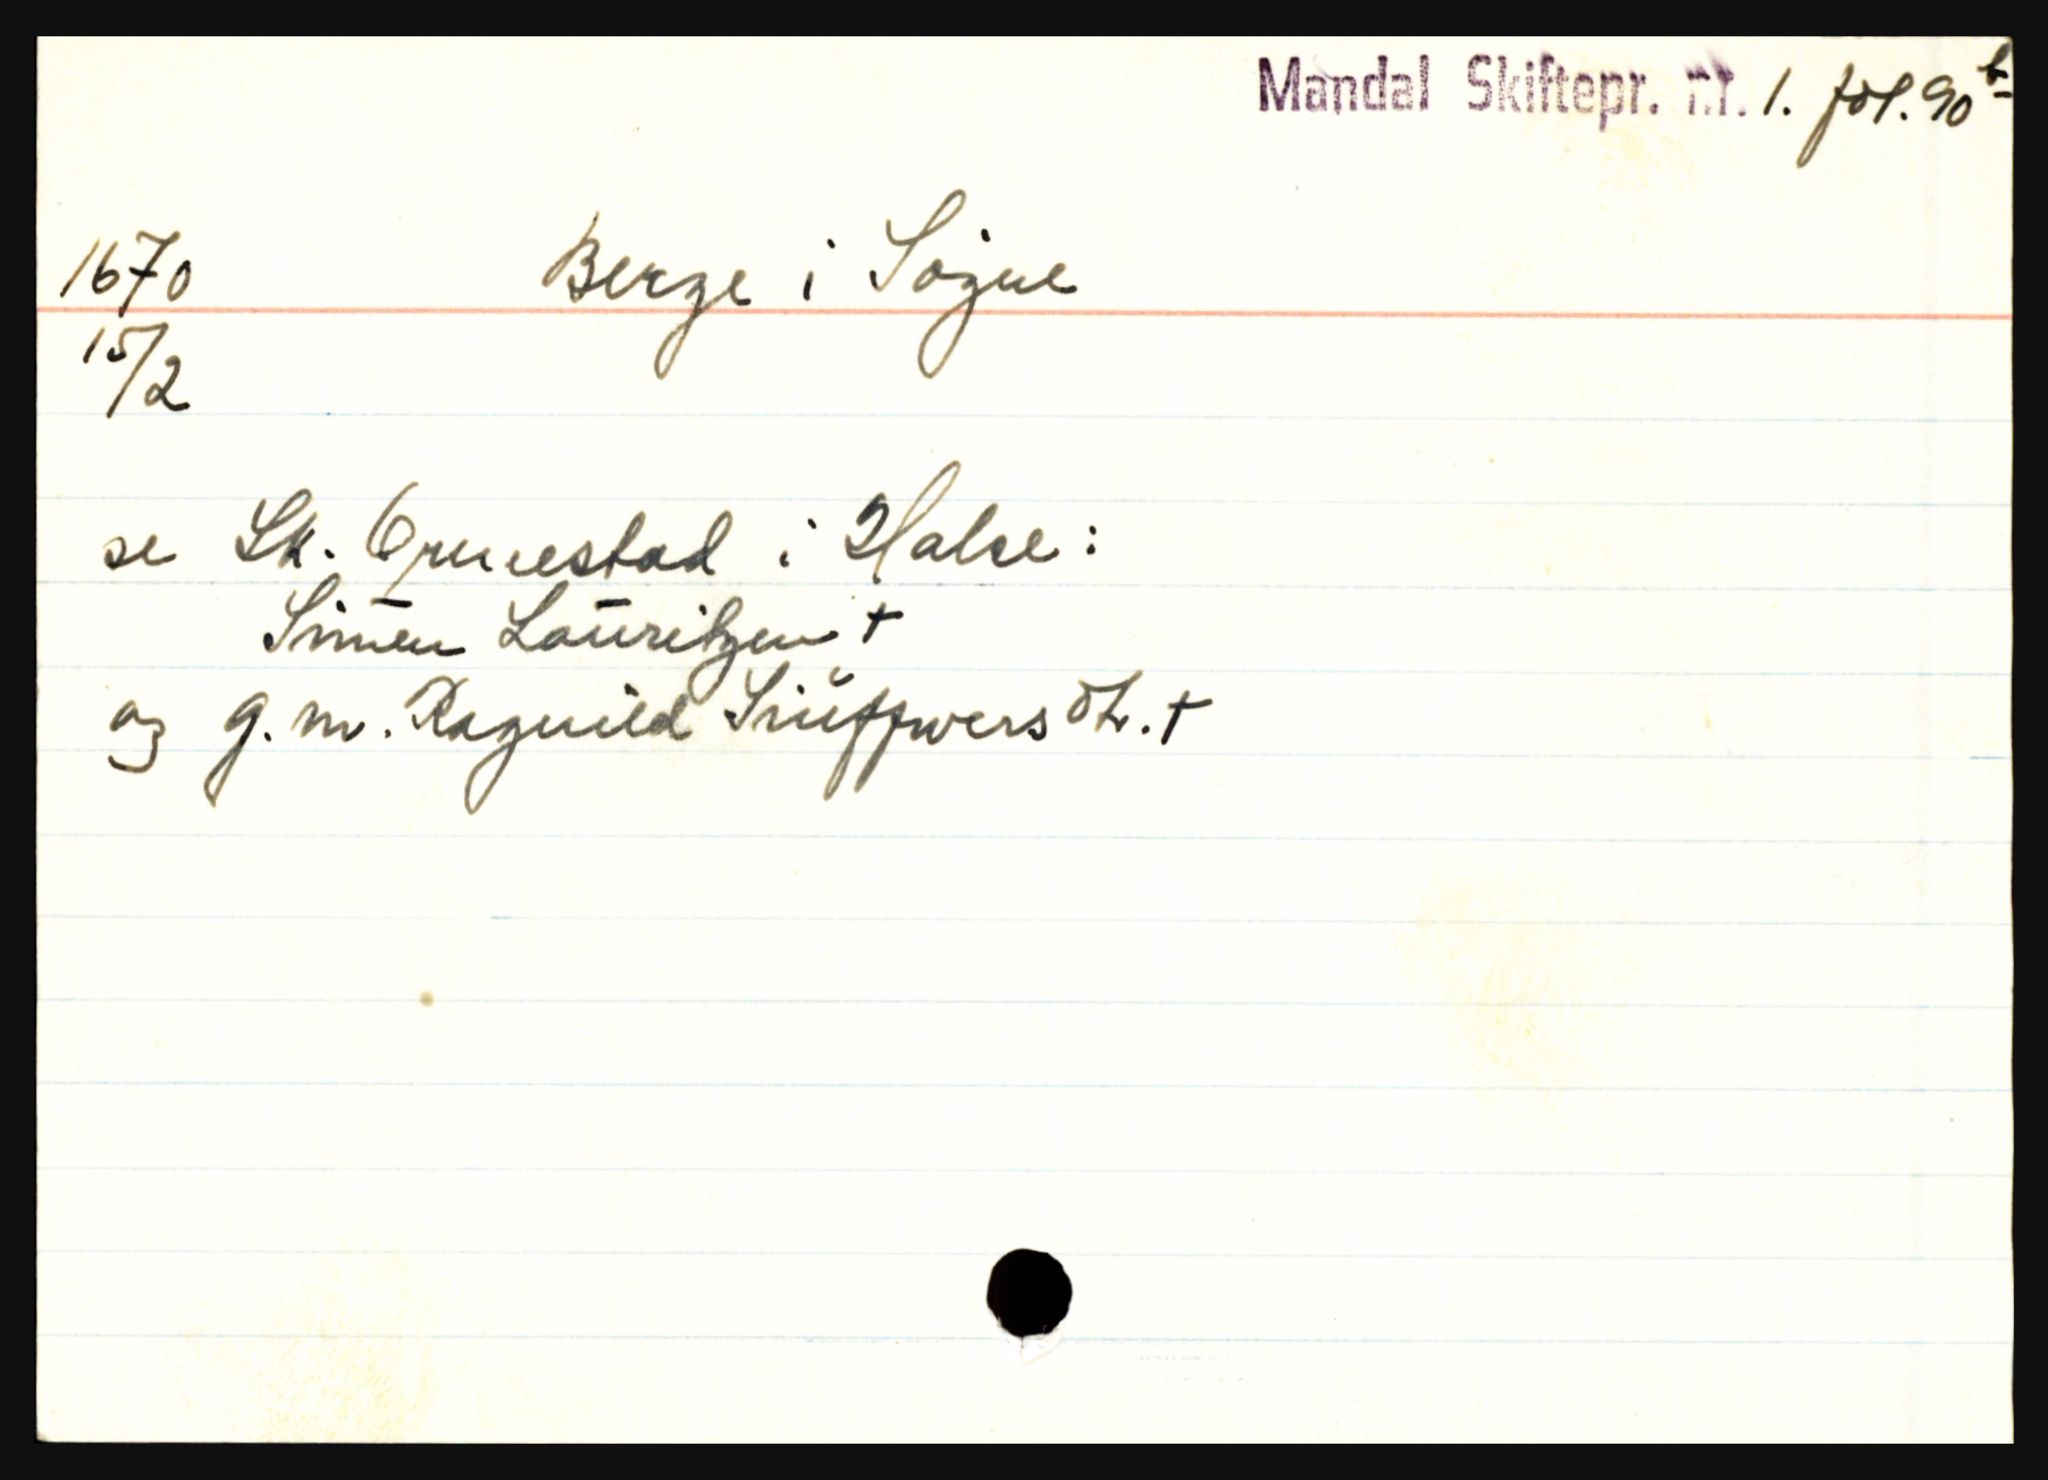 Mandal Skiftepr. nr. 1. fol. 90 b
1670 Berge i Søgne
15/2
se Sk. Ormestad i Halse:
Simen Lauritzen †
og g. m. Ragnild